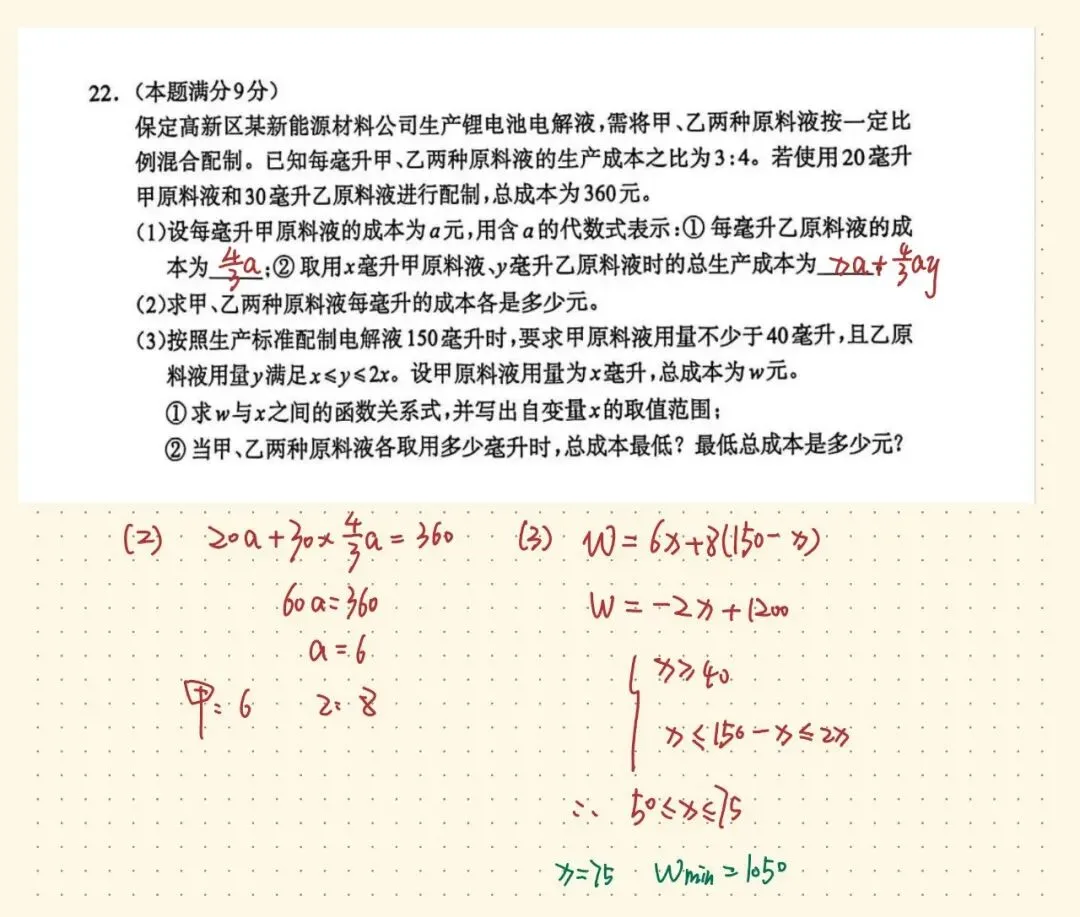 22.(本题满分9分)
保定高新区某新能源材料公司生产锂电池电解液,需将甲、乙两种原料液按一定比
例混合配制。已知每毫升甲、乙两种原料液的生产成本之比为3:4。若使用20毫升
甲原料液和30毫升乙原料液进行配制,总成本为360元。
(1)设每毫升甲原料液的成本为a元,用含a的代数式表示:①每毫升乙原料液的成
本为 4/3a ;②取用x毫升甲原料液、y毫升乙原料液时的总生产成本为 xa+4/3ay
(2)求甲、乙两种原料液每毫升的成本各是多少元。
(3)按照生产标准配制电解液150毫升时,要求甲原料液用量不少于40毫升,且乙原
料液用量y满足x≤y≤2x。设甲原料液用量为x毫升,总成本为w元。
①求w与x之间的函数关系式,并写出自变量x的取值范围;
②当甲、乙两种原料液各取用多少毫升时,总成本最低?最低总成本是多少元?
(2) 20a+30×4/3a=360
60a=360
a=6
甲:6 乙:8
(3) W=6x+8(150-x)
W=-2x+1200
{x≥40
x≤150-x≤2x
∴ 50≤x≤75
x=75 Wmin=1050